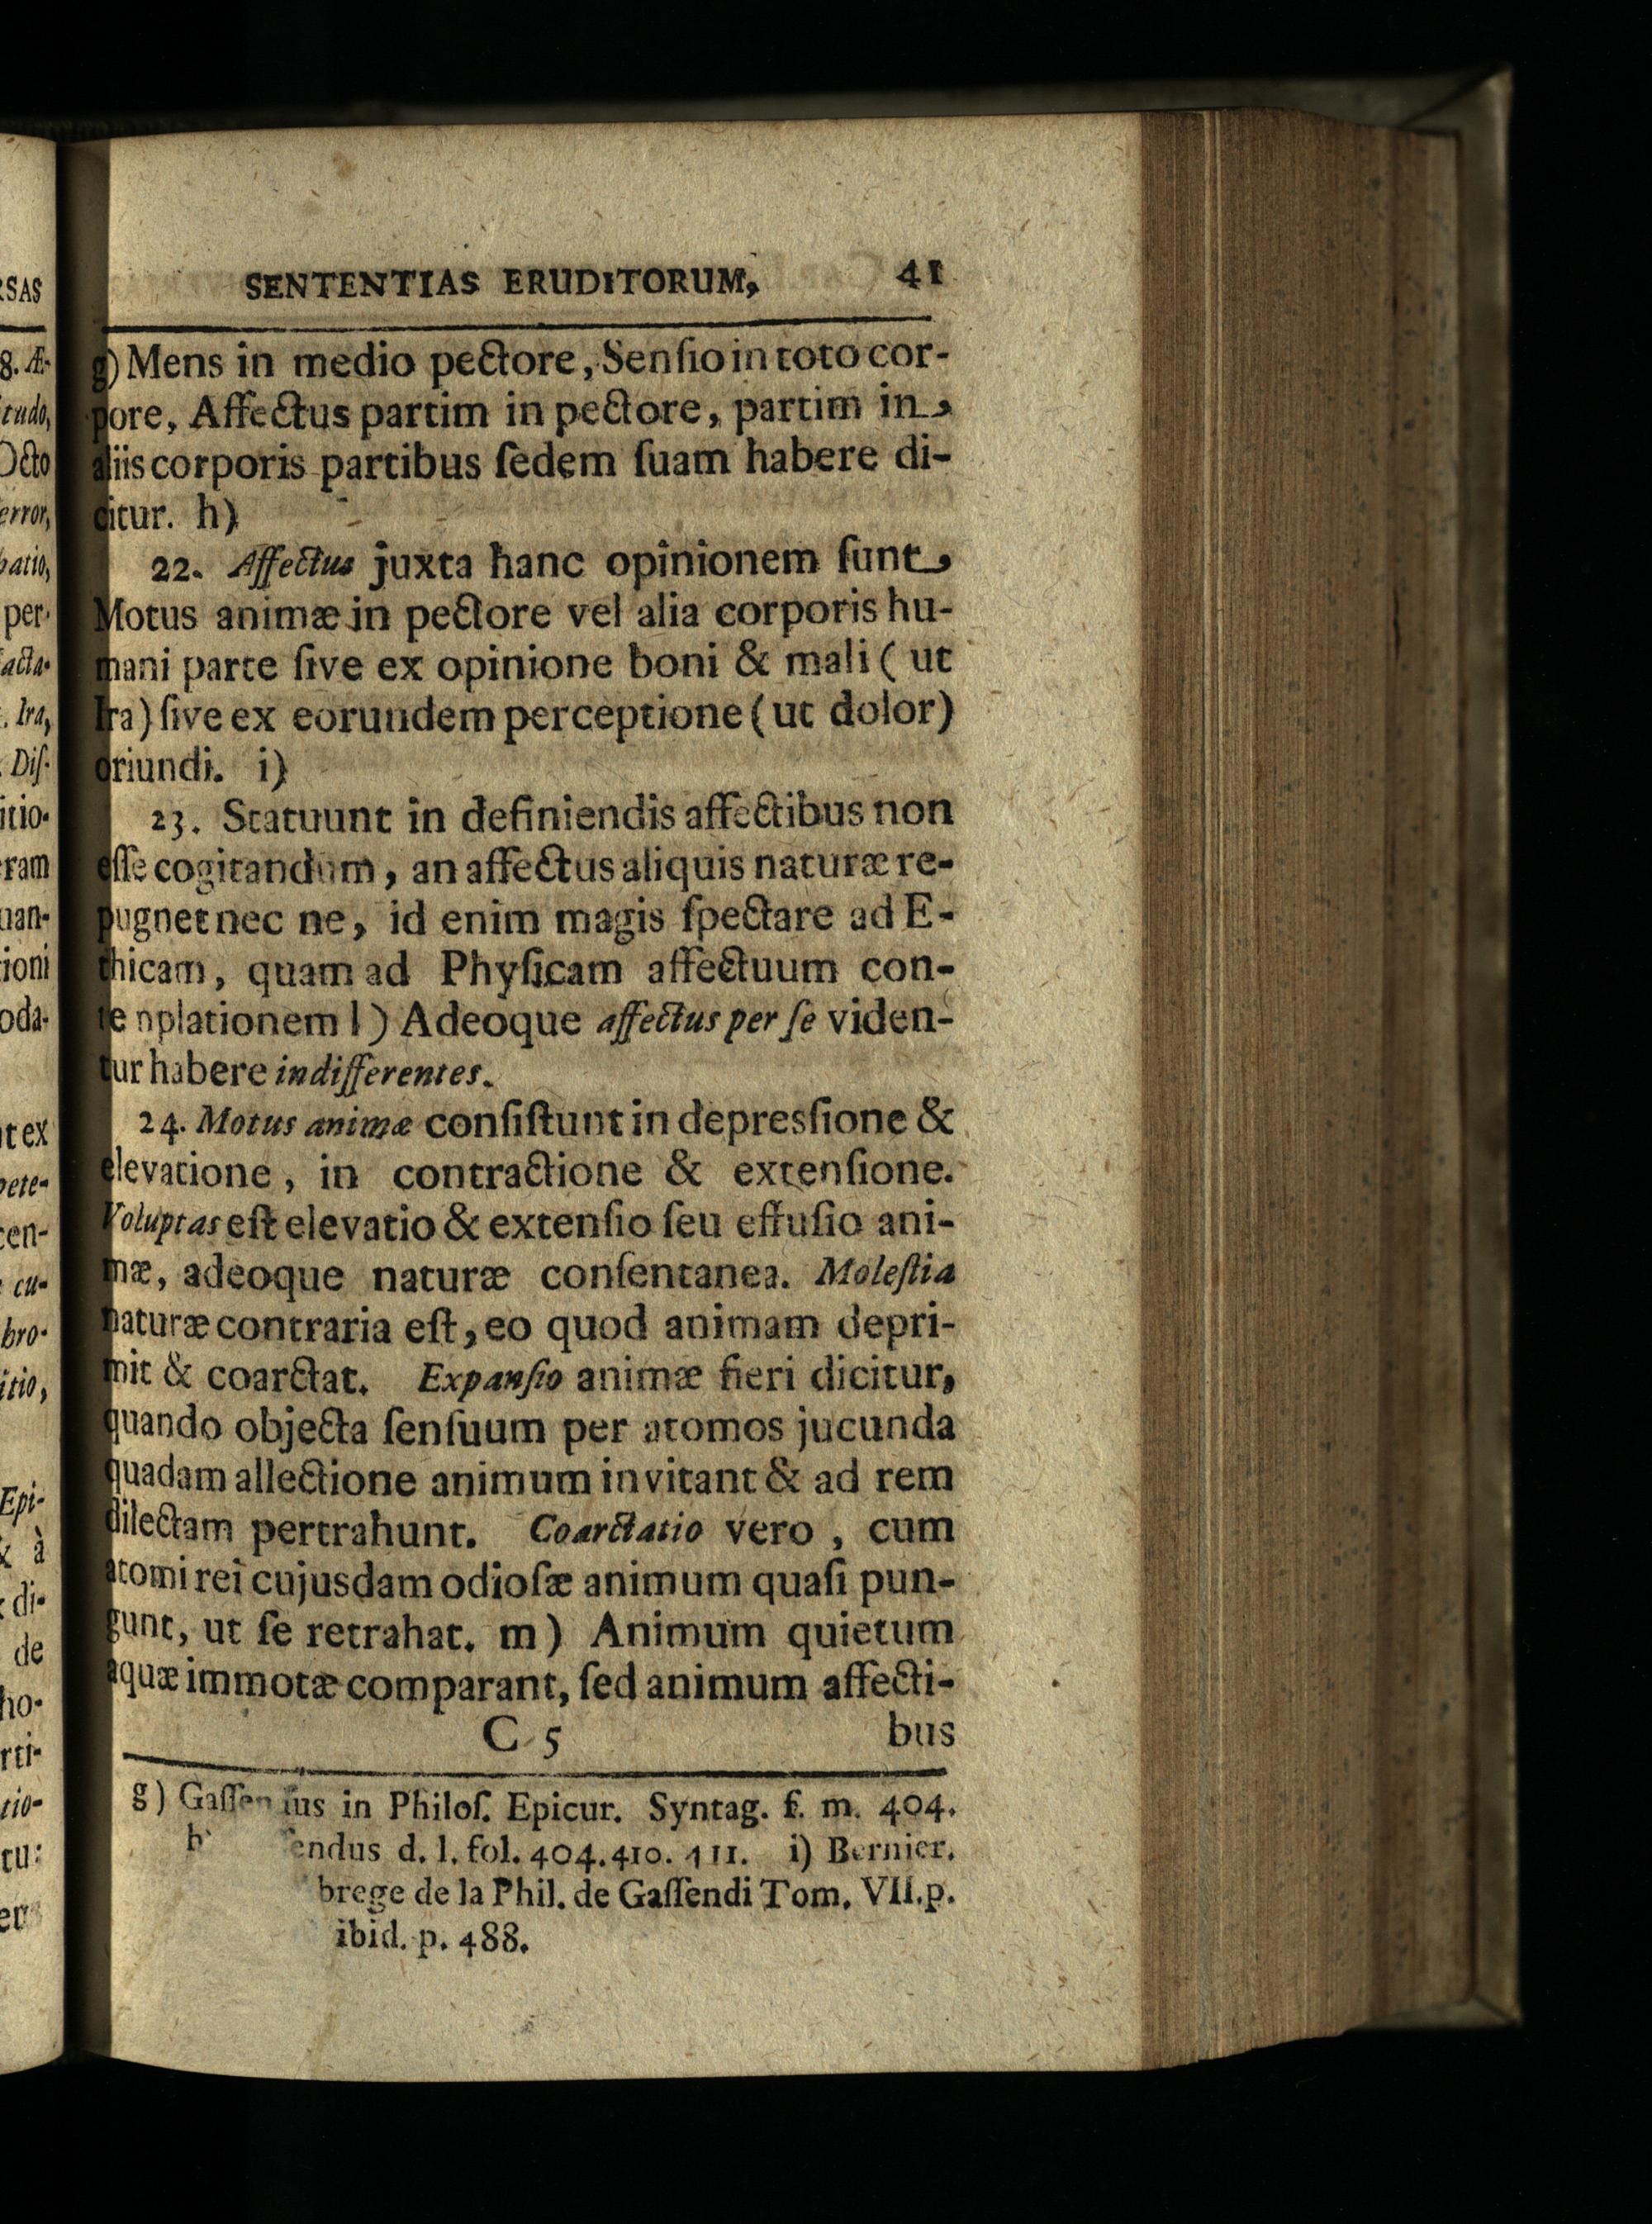 SENTENTIAS ERUDITORUM, 41
g) Mens in medio pectore, Senſio in toto cor-
pore, Affectus partim in pectore, partim in
aliis corporis partibus ſedem ſuam habere di-
citur. h)
22. Affectus juxta hanc opinionem ſunt
Motus animæ in pectore vel alia corporis hu-
mani parte ſive ex opinione boni & mali ( ut
Ira) ſive ex eorundem perceptione (ut dolor)
oriundi. i)
23. Statuunt in definiendis affectibus non
eſſe cogitandum, an affectus aliquis naturæ re-
pugnet nec ne, id enim magis ſpectare ad E-
thicam, quam ad Phyſicam affectuum con-
tenplationem l) Adeoque affectus per ſe viden-
tur habere indifferentes.
24. Motus animæ conſiſtunt in depresſione &
elevatione, in contractione & extenſione.
Voluptas eſt elevatio & extenſio ſeu effuſio ani-
mæ, adeoque naturæ conſentanea. Moleſtia
naturæ contraria eſt, eo quod animam depri-
mit & coarctat. Expanſio animæ fieri dicitur,
quando objecta ſenſuum per atomos jucunda
quadam allectione animum invitant & ad rem
dilectam pertrahunt. Coarctatio vero, cum
atomi rei cujusdam odioſæ animum quaſi pun-
gunt, ut ſe retrahat. m) Animum quietum
aquæ immotæ comparant, ſed animum affecti-
C 5 bus
g) Gaſſen ius in Philoſ. Epicur. Syntag. f. m. 404.
h ſendus d. l. fol. 404. 410. 411. i) Bernier.
brege de la Phil. de Gaſſendi Tom. VII. p.
ibid. p. 488.